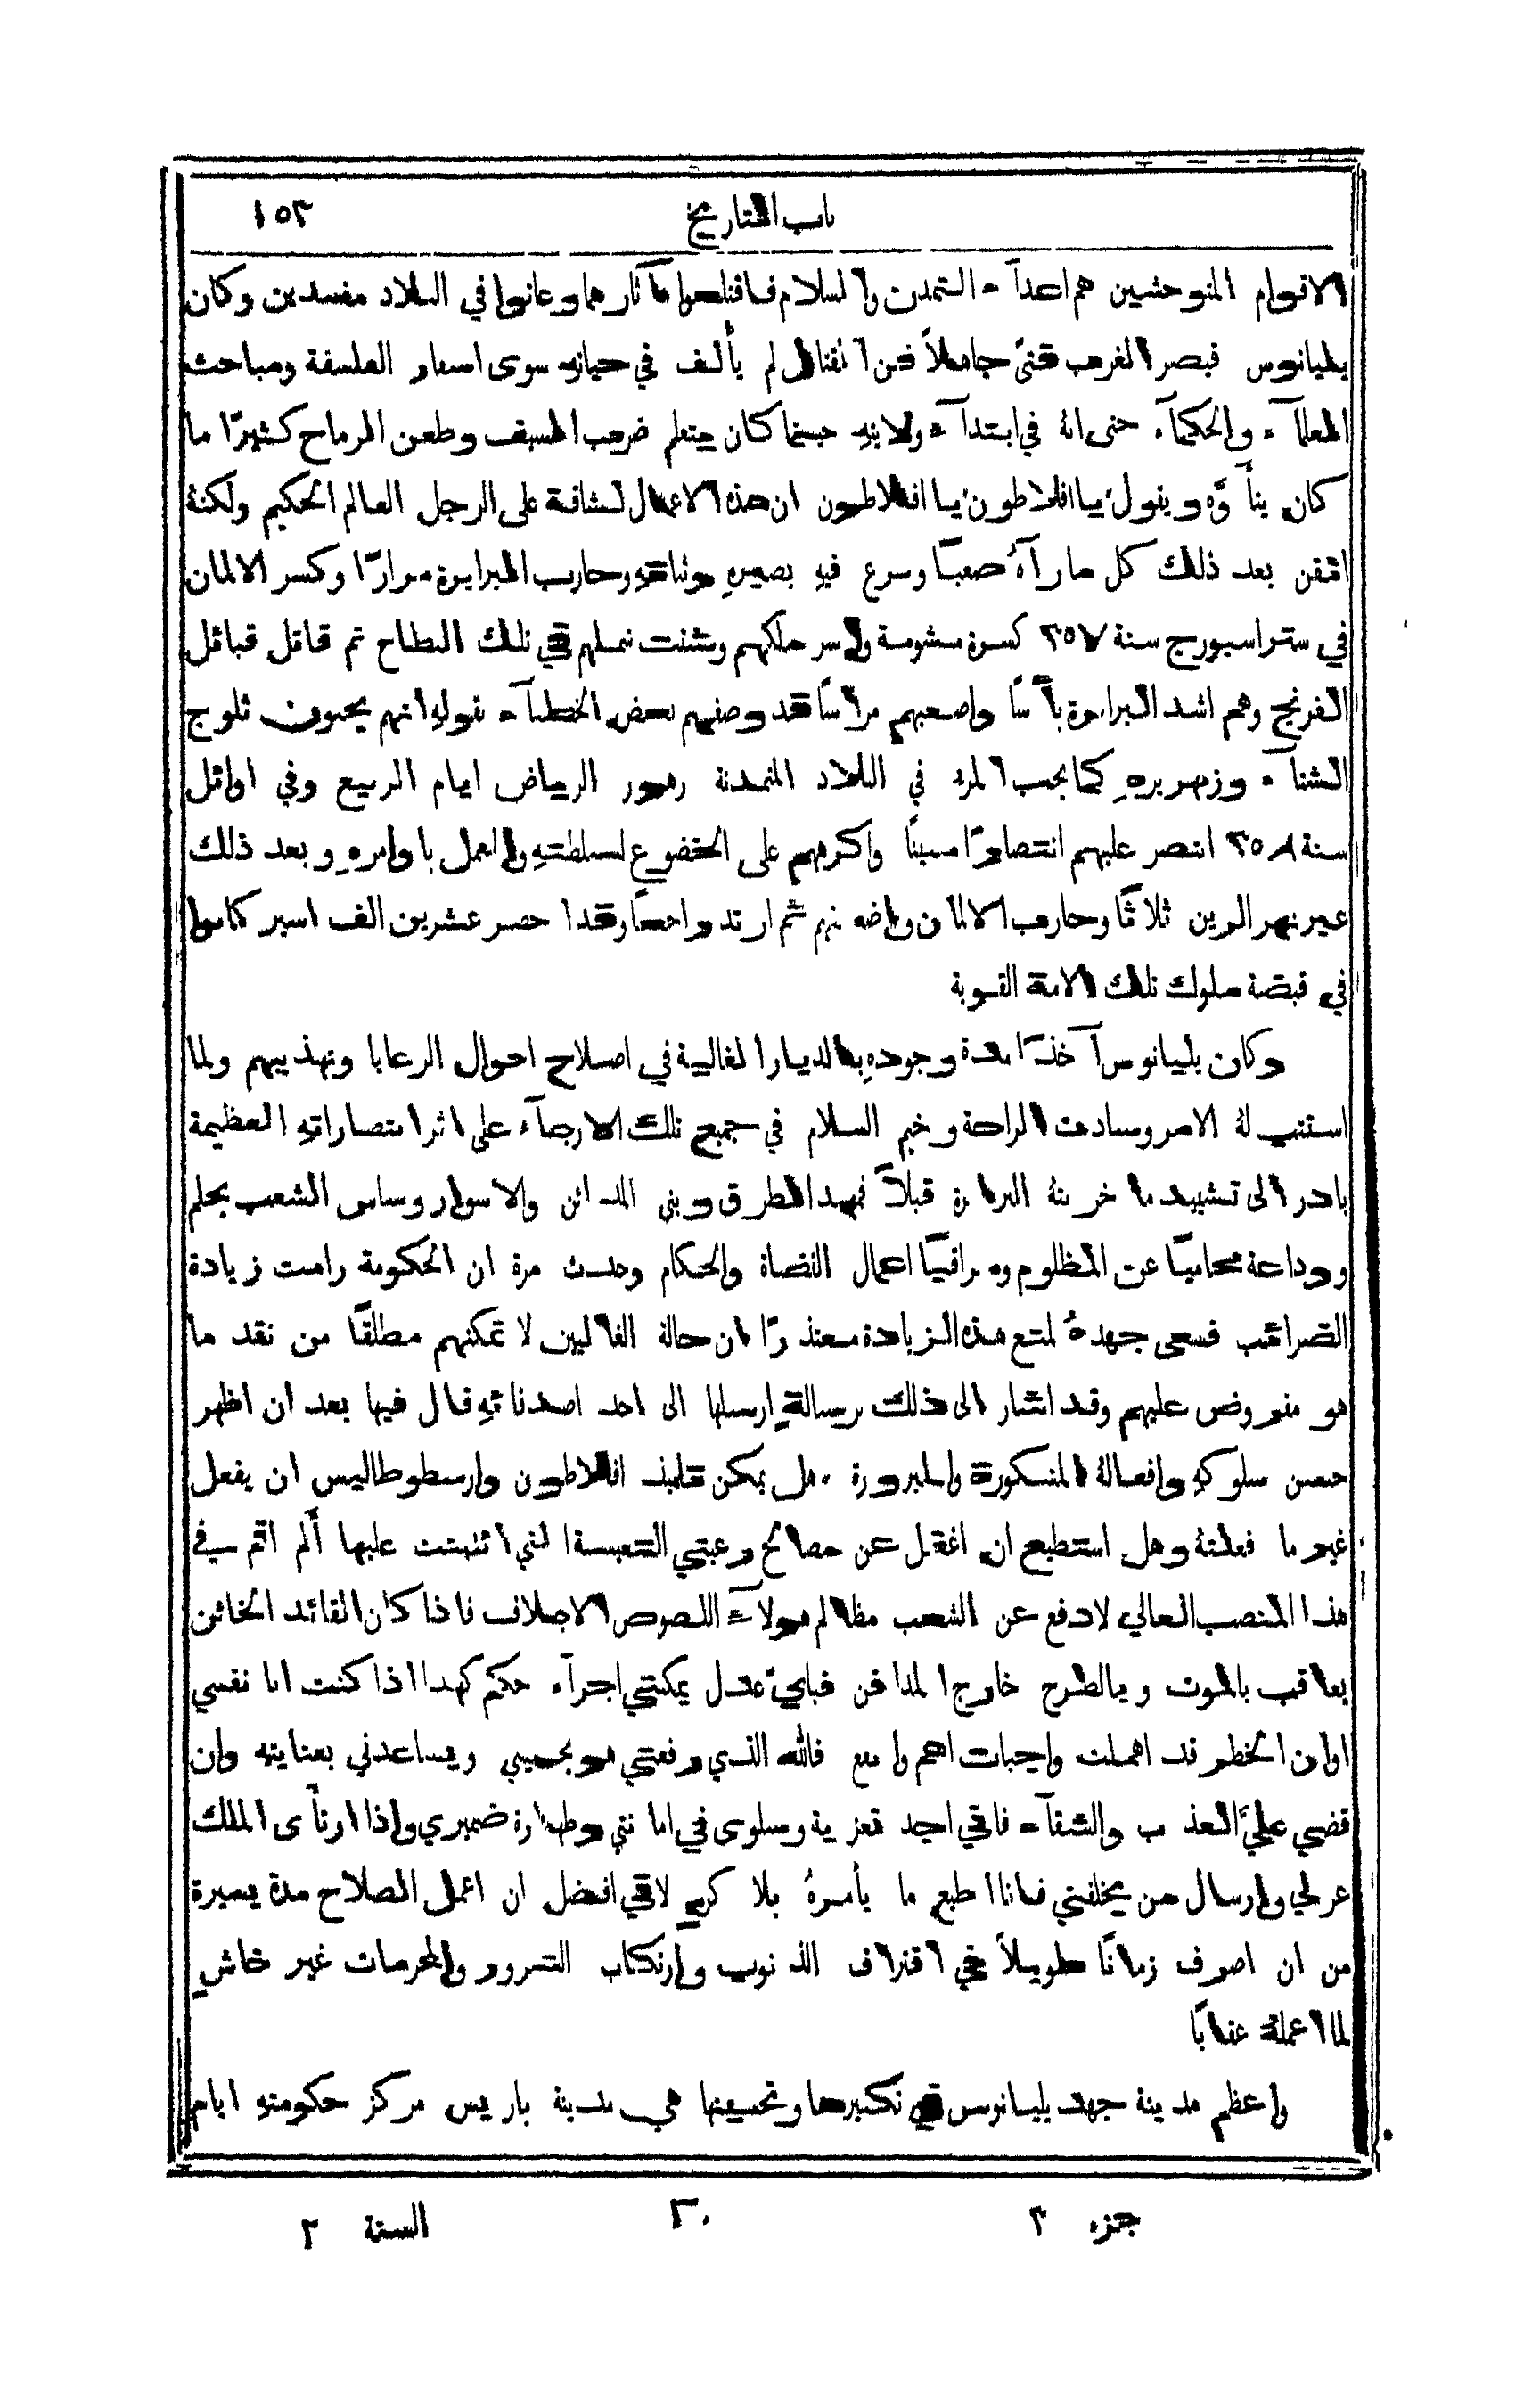 باب التاريخ ١٥٣
الاقوام المتوحشين هم اعدآء التمدن والسلام فاقتلعوا مآثارهما وعاثوا في البلاد مفسدين وكان
يليانوس قيصر الغرب فتىً جاهلاً فن القتال لم يألف في حياتهِ سوى اسفار الفلسفة ومباحث
العلمآء والحكمآء حتى انهُ في ابتدآء ولايتهِ حينما كان يتعلم ضرب السيف وطعن الرماح كثيرًا ما
كان يتأوَّه ويقول يا افلاطون يا افلاطون ان هذه الاعمال لشاقة على الرجل العالم الحكيم ولكنهُ
اتقن بعد ذلك كل ما رآهُ صعبًا وبرع فيهِ بصبرهِ وثباتهِ وحارب البرابرة مرارًا وكسر الالمان
في ستراسبورج سنة ٣٥٧ كسرة مشومة واسر ملكهم وشتت شملهم في تلك البطاح ثم قاتل قبائل
الفرنج وهم اشد البرابرة بأسًا واصعبهم مراسًا قد وصفهم بعض الخطبآء بقولهِ انهم يحبون ثلوج
الشتآء وزمهريرهِ كما يحب المرء في البلاد المتمدنة زهور الرياض ايام الربيع وفي اوائل
سنة ٣٥٨ انتصر عليهم انتصارًا مبينًا واكرههم على الخضوع لسلطتهِ والعمل باوامرهِ وبعد ذلك
عبر نهر الرين ثلاثًا وحارب الالمان وواضعـ نهم ثم ارتد راجعًا وقد احضر عشرين الف اسير كانوا
في قبضة ملوك تلك الامة القوية
وكان يليانوس آخذًا مدة وجودهِ بالديار الغالية في اصلاح احوال الرعايا وتهذيبهم ولما
استتب لهُ الامر وسادت الراحة وخيم السلام في جميع تلك الارجآء على اثر انتصاراتهِ العظيمة
بادر الى تشييد ما خربتهُ البرابرة قبلاً فمهد الطرق وبنى المدائن والاسوار وساس الشعب بحلم
ووداعة محاميًا عن المظلوم ومراقبًا اعمال القضاة والحكام وحدث مرة ان الحكومة رامت زيادة
الضرائب فسعى جهدهُ لمنع هذه الزيادة معتذرًا ان حالة الغاليين لا تمكنهم مطلقًا من نقد ما
هو مفروض عليهم وقد اشار الى ذلك برسالة ارسلها الى احد اصدقائهِ قال فيها بعد ان اظهر
حسن سلوكهِ وافعالهُ المشكورة والمبرورة . هل يمكن تلميذ افلاطون وارسطوطاليس ان يفعل
غير ما فعلتهُ وهل استطيع ان اغفل عن مصالح رعيتي التعيسة التي ائتمنت عليها ألم اقم في
هذا المنصب العالي لادفع عن الشعب مظالم هولآء اللصوص الاجلاف فاذا كان القائد الخائن
يعاقب بالموت وبالطرح خارج المدافن فبايّ عدل يمكنني اجرآء حكم كهذا اذا كنت انا نفسي
اوان الخطر قد اهملت واجبات اهم وانفع فالله الذي رفعني هو يحميني ويساعدني بعنايتهِ وان
قضي عليَّ العذاب والشقآء فاني اجد تعزية وسلوى في امانتي وطهارة ضميري واذا ارتأى الملك
عزلي وارسال من يخلفني فانا اطيع ما يأمرهُ بلا كره لاني افضل ان اعمل الصلاح مدة يسيرة
من ان اصرف زمانًا طويلاً في اقتراف الذنوب وارتكاب الشرور والمحرمات غير خاشٍ
لما اعملهُ عقابًا
واعظم مدينة جهد يليانوس في تكبيرها وتحسينها هي مدينة باريس مركز حكومتهِ ايام
جزء ٣ ٢٠ السنة ٢